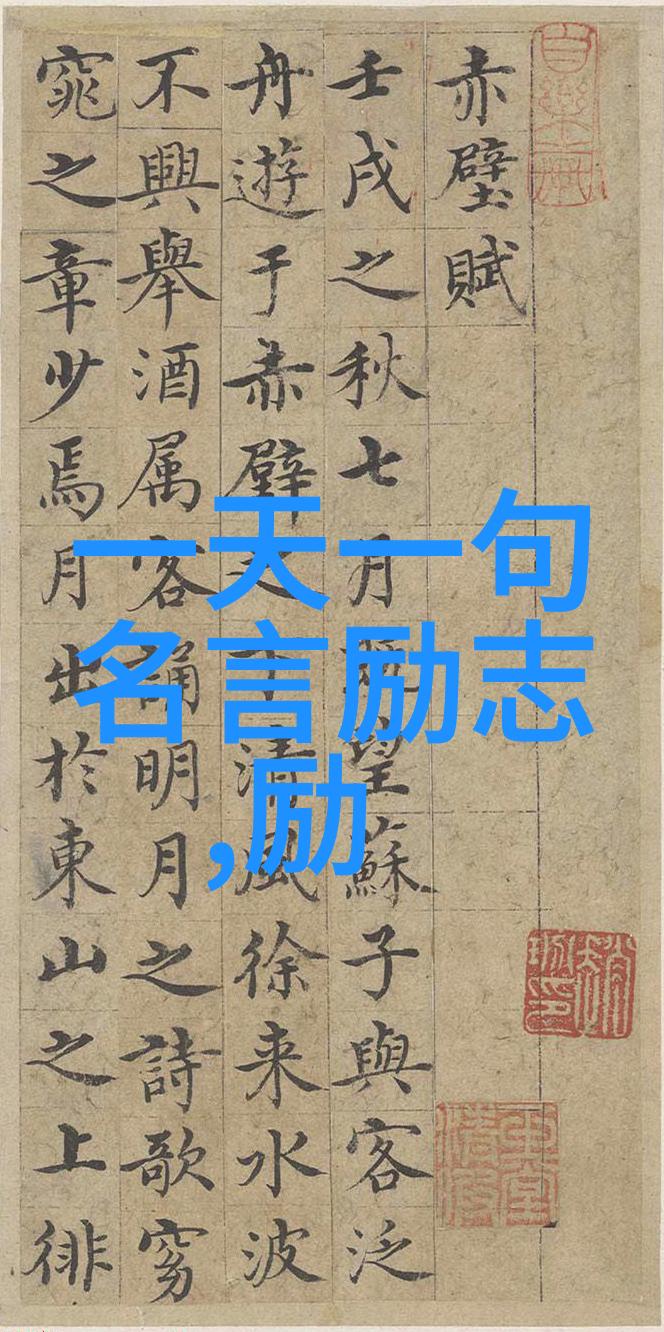 赤壁賦
壬戌之秋七月既望蘇子與客泛
舟遊于赤壁之下清風徐来水波
不興舉酒属客誦明月之詩歌窈
窕之章少焉月出於東山之上徘
一天一句
名言励志
,励